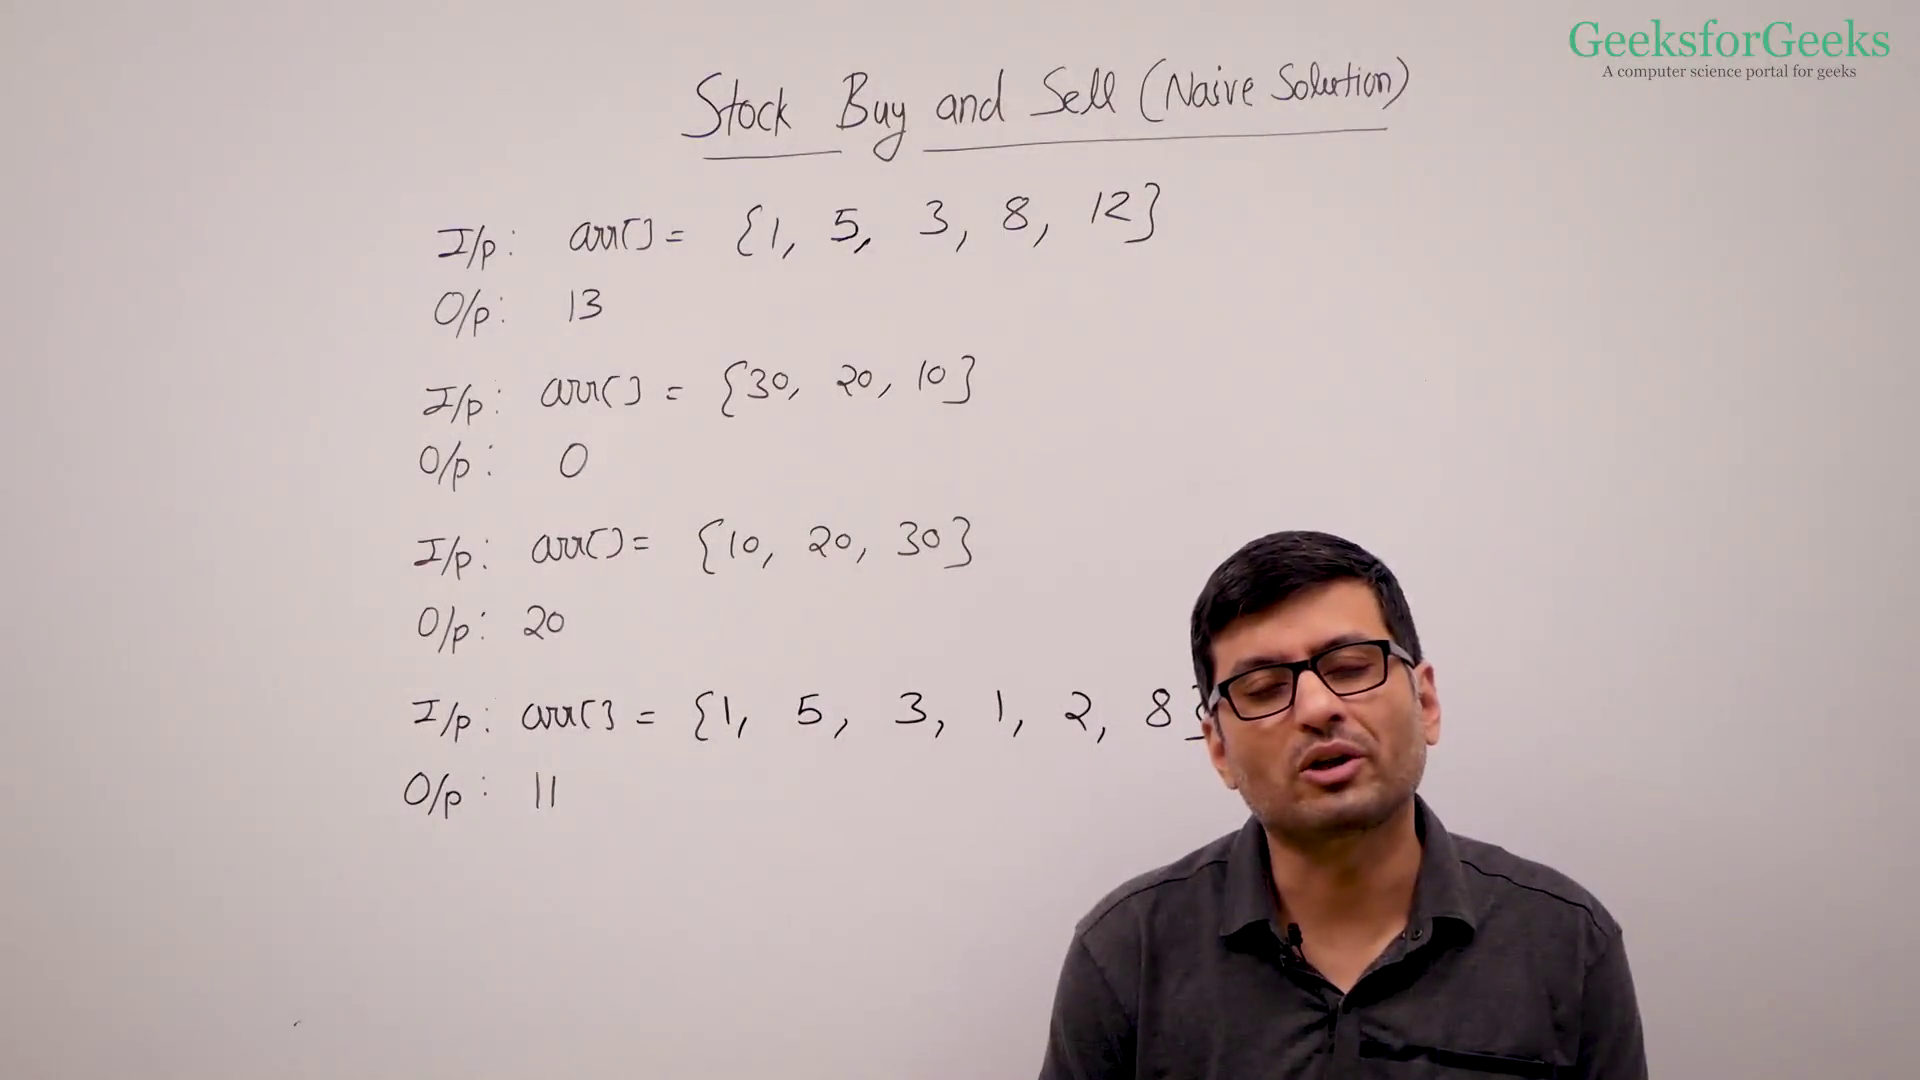 GeeksforGeeks
A computer science portal for geeks
Stock Buy and Sell (Naive Solution)
I/p: arr[] = {1, 5, 3, 8, 12}
O/p: 13
I/p: arr[] = {30, 20, 10}
O/p: 0
I/p: arr[] = {10, 20, 30}
O/p: 20
I/p: arr[] = {1, 5, 3, 1, 2, 8}
O/p: 11